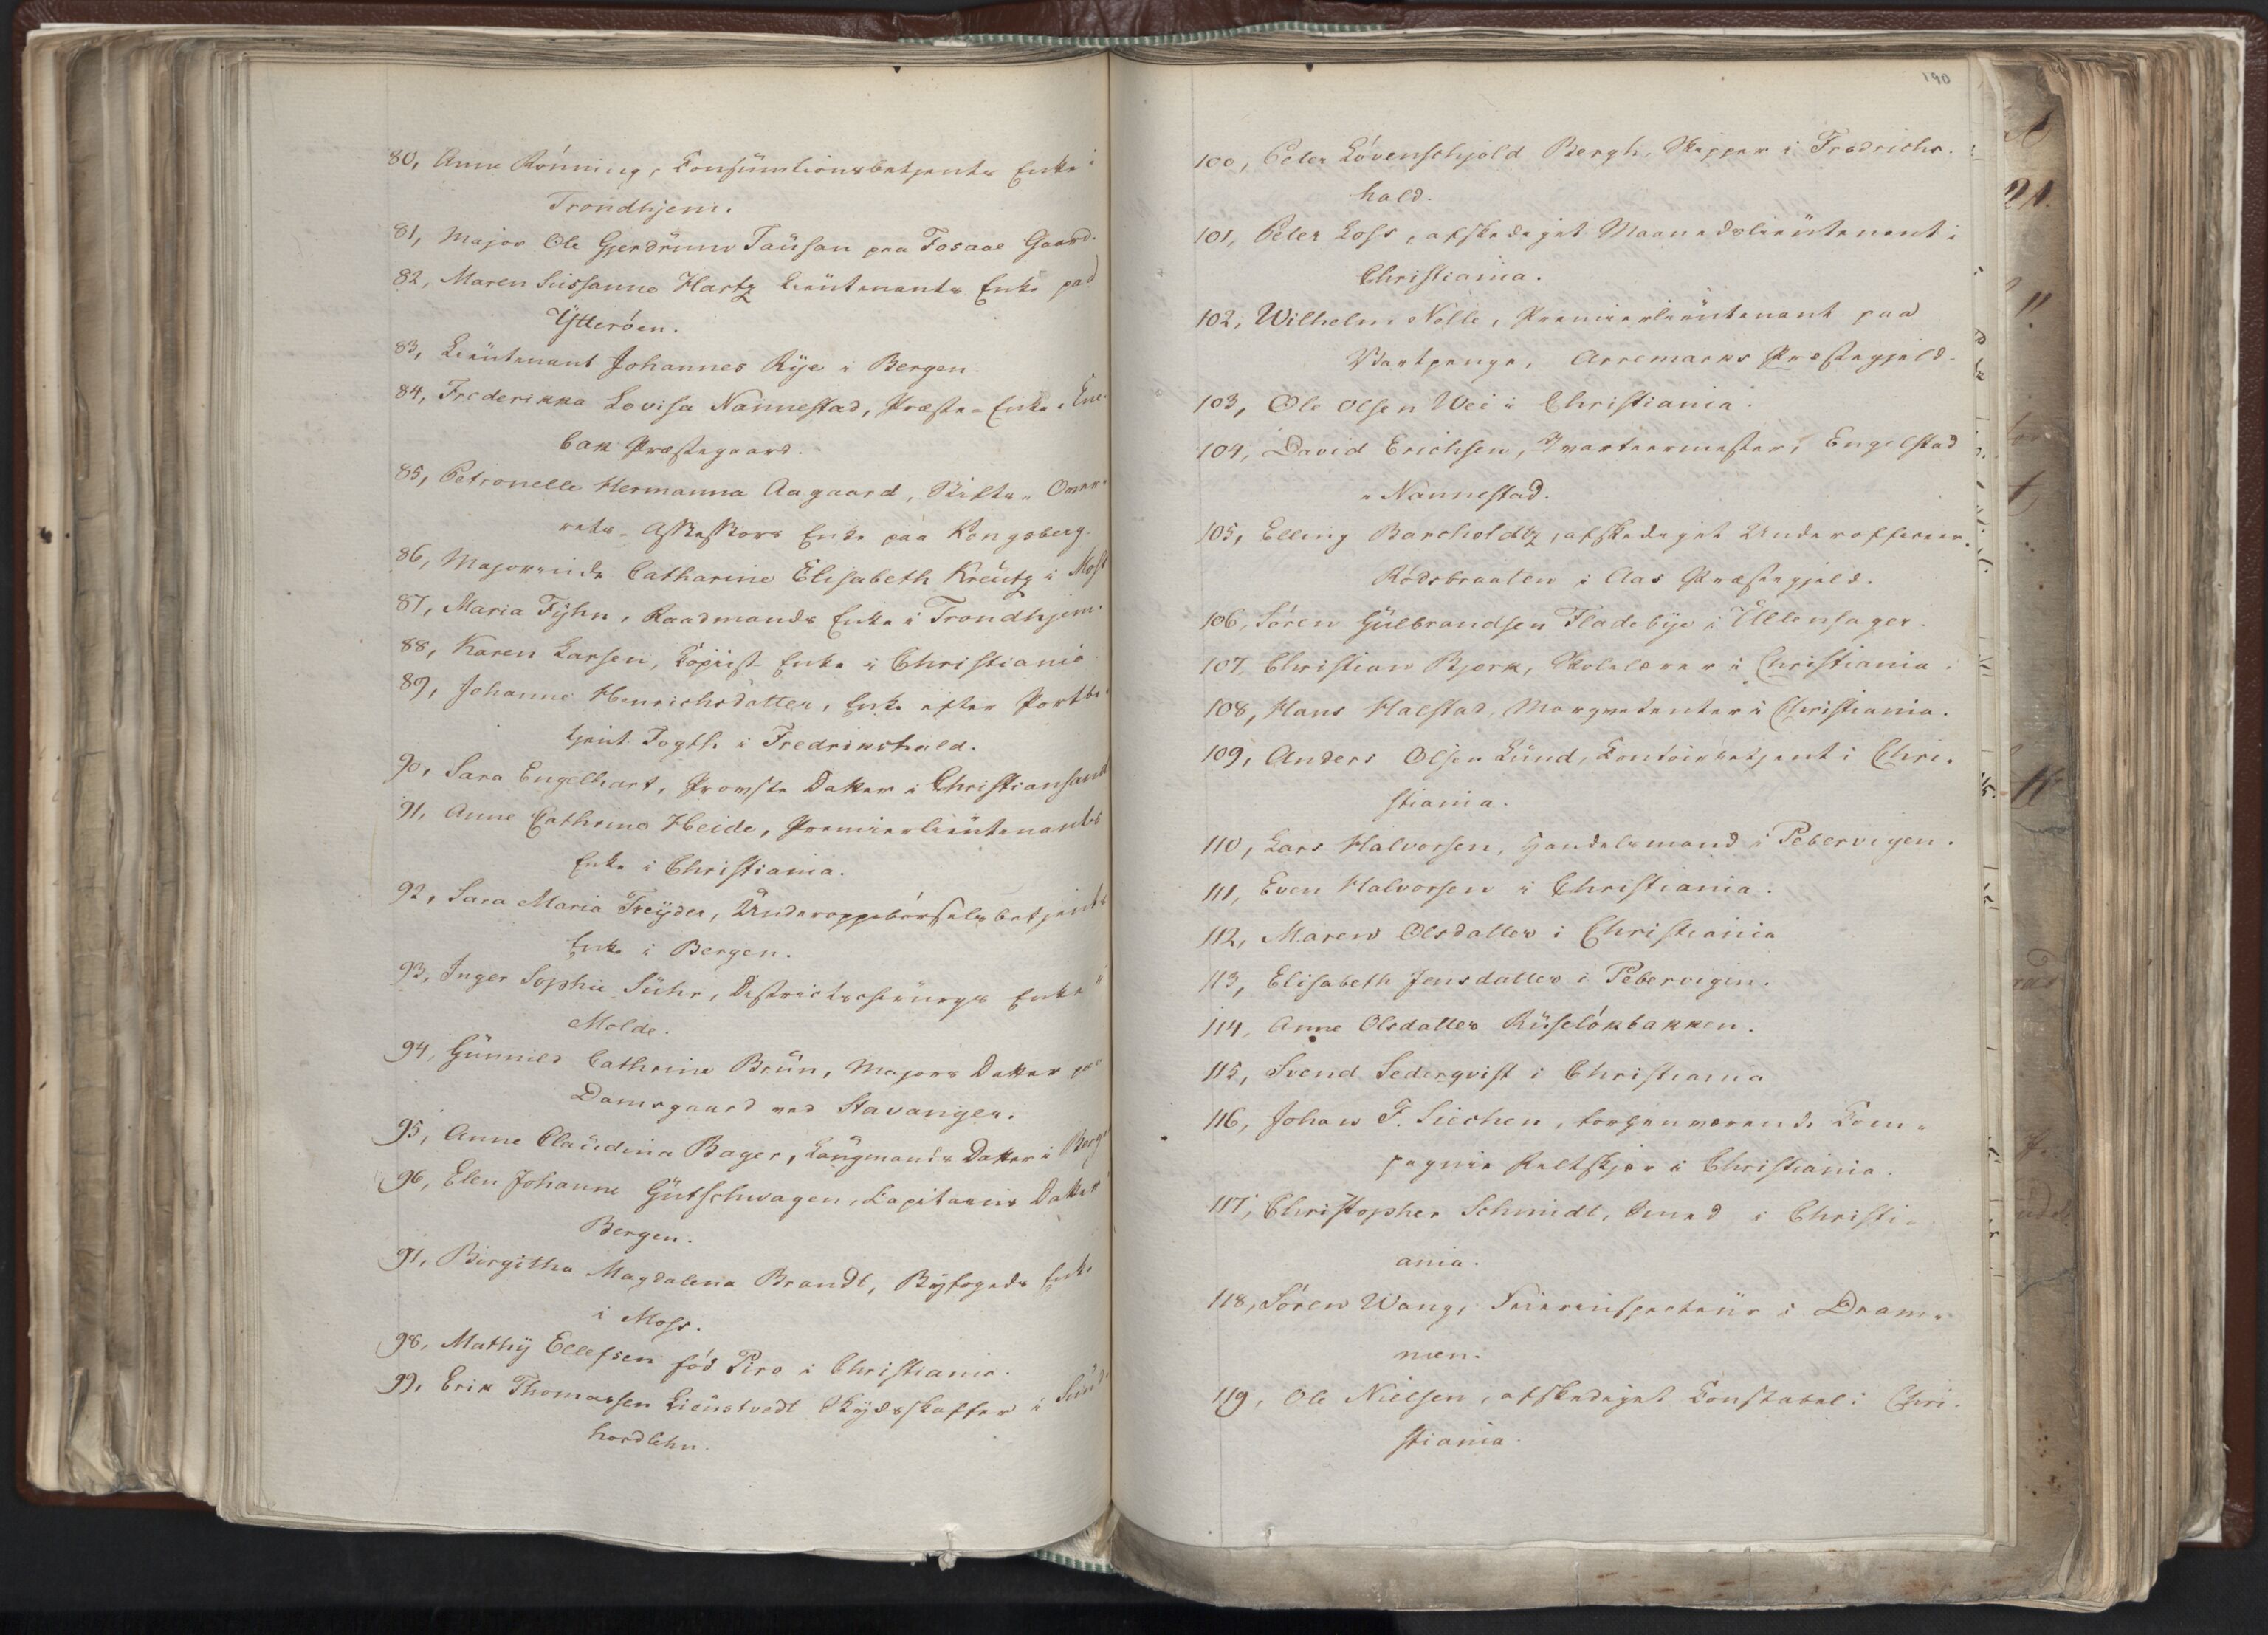 80, Anne Rónning, Consümtionsbetjents Enke i
Trondhjem.
81, Major Ole Gjerdrüm Taüsan paa Fosaae Gaard.
82, Maren Süssanne Hartz Lieütenants Enke paa
Ÿtteróen.
83, Lieütenant Johannes Rÿe i Bergen.
84, Frederikka Lovisa Nannestad, Præste-Enke, Ene-
bak Præstegaard.
85, Petronelle Hermanna Aagaard, Stifts- Over-
rets- Assessors Enke paa Kongsberg.
86, Majorinde Catharine Elisabeth Kreütz i Moss
87, Maria Fÿhn, Raadmands Enke i Trondhjem.
88, Karen Larsen, Copiist Enke i Christiania
89, Johanne Henrichsdatter, Enke efter Portbe-
tjent Fogth i Fredrikshald.
90, Sara Engelhart, Provste Datter i Christiansand
91, Anne Cathrine Heide, Premierlieütenants
Enke i Christiania.
92, Sara Maria Treÿder, Underoppebórselsbetjents
Enke i Bergen.
93, Inger Sophie Sühr, Districtschirurgs Enke i
Molde.
94, Günnild Cathrine Brün, Majors Datter paa
Damsgaard ved Stavanger.
95, Anne Claüdina Bager, Laugmands Datter i Berge
96, Elen Johanne Gütschwagen, Capitains Datter
Bergen.
97, Birgitha Magdalena Brandt, Bÿfogeds Enke
i Moss.
98, Mathÿ Ellefsen fód Piro i Christiania.
99, Erik Thomassen Lieüstvedt Skÿdsskaffer i Sünd-
hordlehn.
190
100, Peter Lóvenschjold Bergh, Skipper i Fredrichs-
hald.
101, Peter Loss, afskediget Maanedslieütenant i
Christiania.
102, Wilhelm Nolle, Premierlieütenant paa
Vartpenge, Arremarks Præstegjeld.
103, Ole Olsen Wei i Christiania.
104, David Erichsen, Qvarteermester, Engelstad
i Nannestad.
105, Elling Barcholdtz, afskediget Underofficeer
Ródsbraaten i Aas Præstegjeld.
106, Sóren Gülbrandsen Fladebÿe i Üllensager.
107, Christian Bjerk, Skolelærer i Christiania.
108, Hans Halstad, Marqvetenter i Christiania.
109, Anders Olsen Lünd, Contoirbetjent i Chri-
stiania.
110, Lars Halvorsen, Handelsmand i Pebervigen.
111, Even Halvorsen i Christiania.
112, Maren Olsdatter i Christiania
113, Elisabeth Jensdatter i Pebervigen.
114, Anne Olsdatter Rüselókbakken.
115, Svend Sederqvist i Christiania
116, Johan F. Siechen, forhenværende Com-
pagnie Feltskjer i Christiania.
117, Christopher Schmidt, Smed i Christi-
ania.
118, Sóren Wang, Feierinspecteür i Dram-
men.
119, Ole Nielsen, afskediget Constabel i Chri-
stiania.